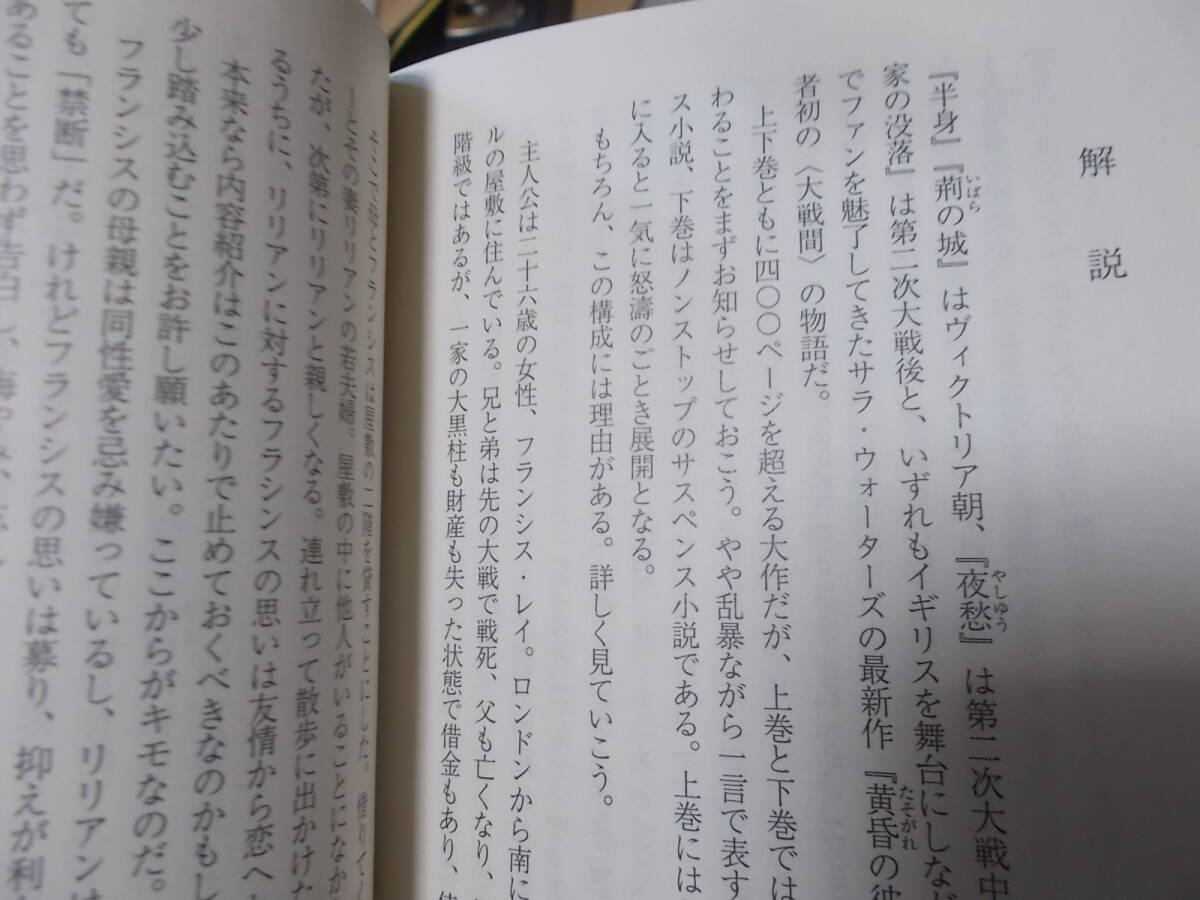 解説
『半身』『荊の城』はヴィクトリア朝、『夜愁』は第二次大戦中
いばら
やしゆう
家の没落』は第二次大戦後と、いずれもイギリスを舞台にしなが
でファンを魅了してきたサラ・ウォーターズの最新作『黄昏の彼
たそがれ
者初の〈大戦間〉の物語だ。
上下巻ともに四〇〇ページを超える大作だが、上巻と下巻では
わることをまずお知らせしておこう。やや乱暴ながら一言で表す
ス小説、下巻はノンストップのサスペンス小説である。上巻には
に入ると一気に怒濤のごとき展開となる。
もちろん、この構成には理由がある。詳しく見ていこう。
主人公は二十六歳の女性、フランシス・レイ。ロンドンから南に
ルの屋敷に住んでいる。兄と弟は先の大戦で戦死、父も亡くなり、
階級ではあるが、一家の大黒柱も財産も失った状態で借金もあり、使
そこで母とフランシスは屋敷の二階を貸すことにした。借りてく
ーとその妻リリアンの若夫婦。屋敷の中に他人がいることになか
たが、次第にリリアンと親しくなる。連れ立って散歩に出かけた
るうちに、リリアンに対するフランシスの思いは友情から恋へ
本来なら内容紹介はこのあたりで止めておくべきなのかもし
少し踏み込むことをお許し願いたい。ここからがキモなのだ。
フランシスの母親は同性愛を忌み嫌っているし、リリアンは
ても「禁断」だ。けれどフランシスの思いは募り、抑えが利
あることを思わず告白し、悔やみ、